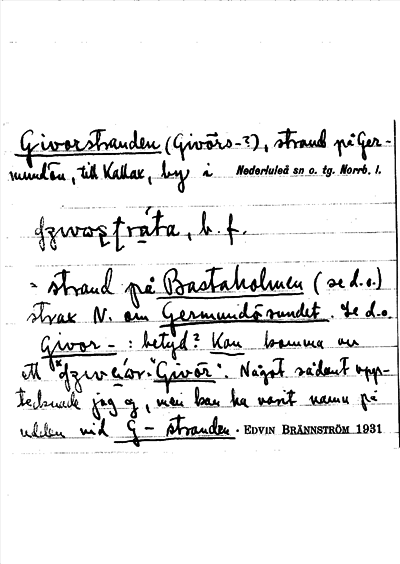 Givorstranden (Givörs-?), strand på Ger-
mundön, till Kallax, by i Nederluleå sn o. tg. Norrb. l.
b. f.
= strand på Bastaholmen (se d.o.)
strax N. om Germundösundet. Se d.o.
Givor- : betyd? Kan komma av
ett "Givör". Något sådant upp-
tecknade jag ej, men kan ha varit namn på
udden vid G-stranden. EDVIN BRÄNNSTRÖM 1931